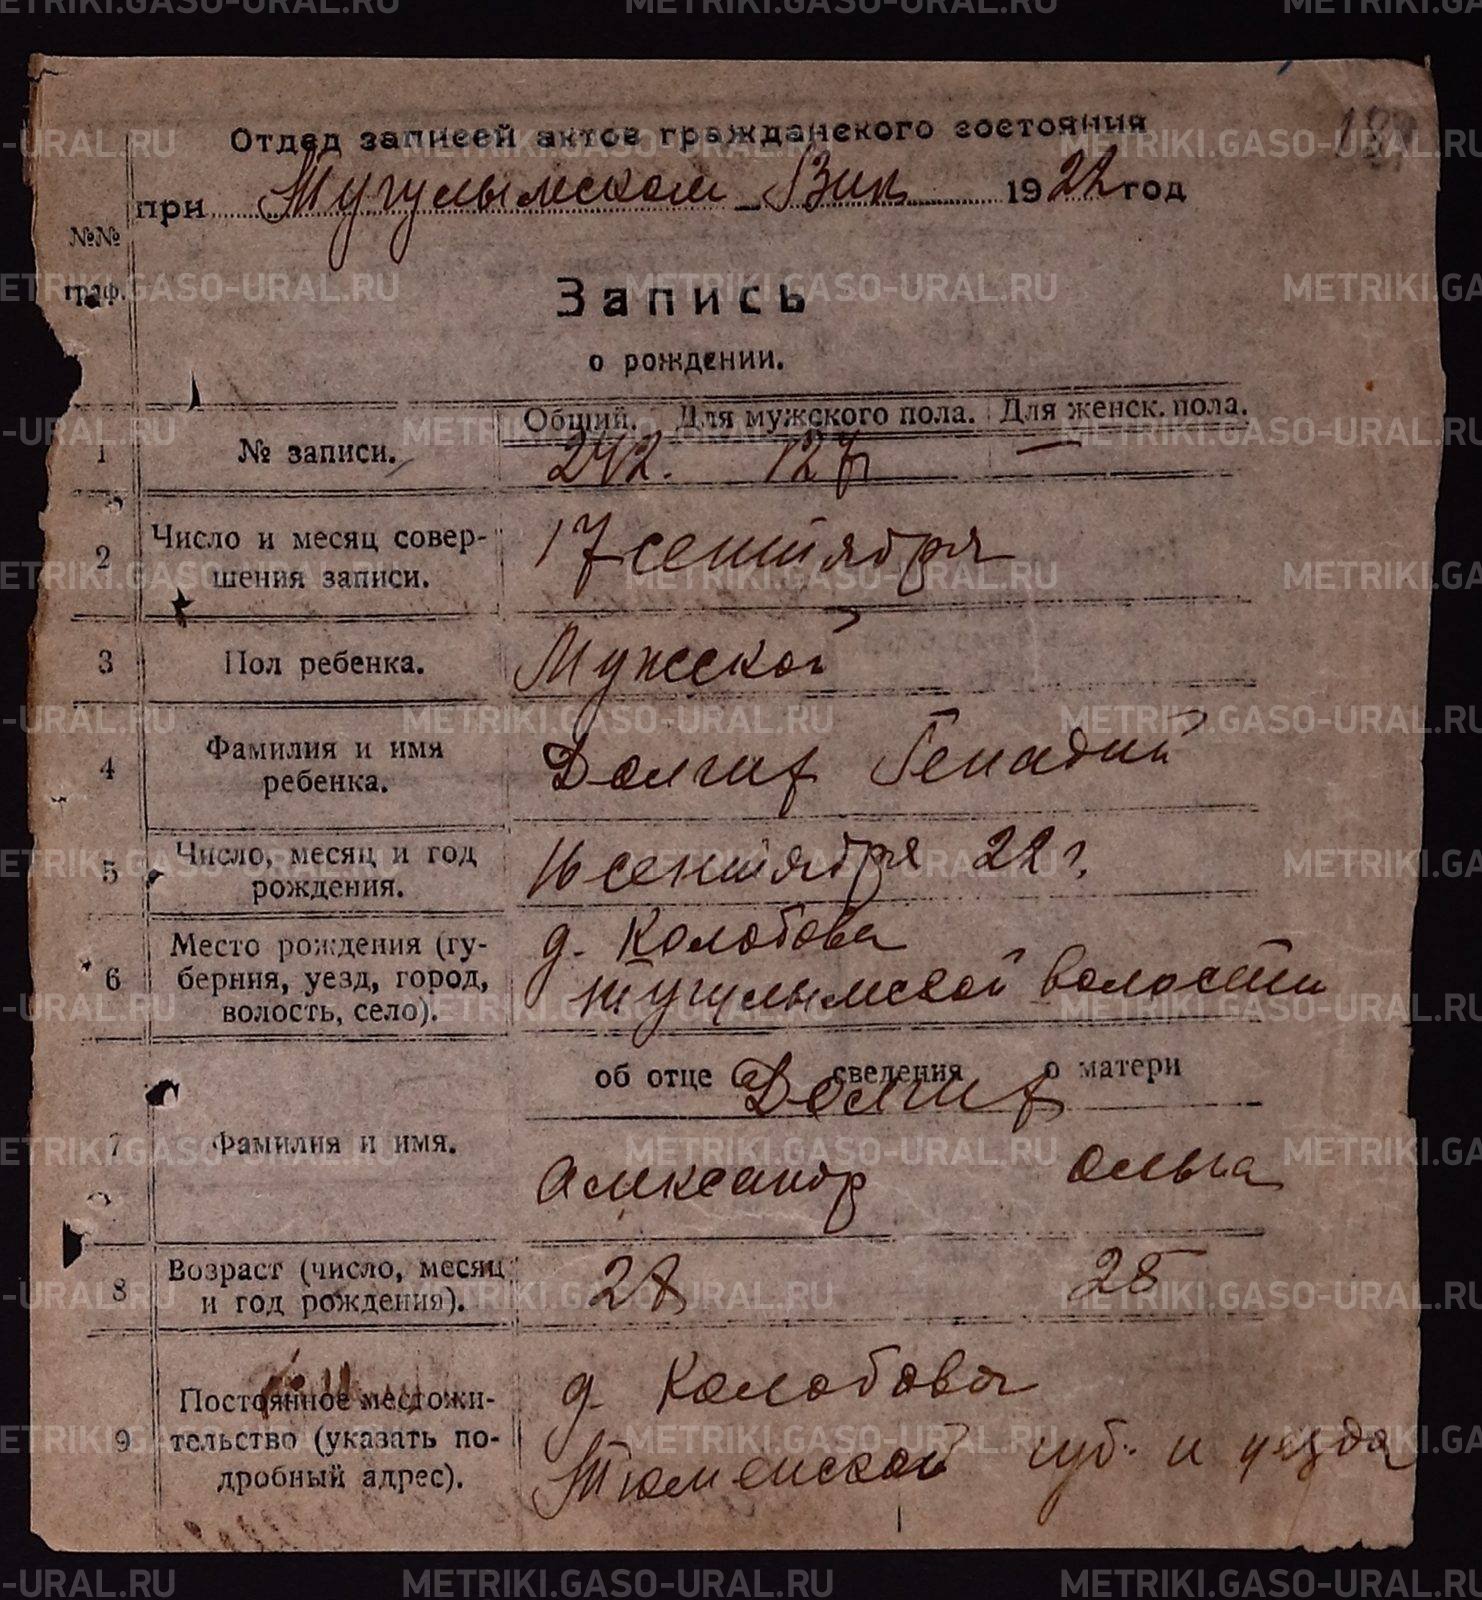 187
Отдел записей актов гражданского состояния
при Тугулымском Вик 1922 год
№№ граф.
Запись
о рождении.
Общий. Для мужского пола. Для женск. пола.
1 № записи. 242. 127 —
2 Число и месяц совер-
шения записи. 17 сентября
3 Пол ребенка. Мужской
4 Фамилия и имя
ребенка. Долгих Генадий
5 Число, месяц и год
рождения. 16 сентября 22 г.
6 Место рождения (гу-
берния, уезд, город,
волость, село). д. Колобова
Тугулымской волости
об отце сведения о матери
Долгих
7 Фамилия и имя. Александр Ольга
8 Возраст (число, месяц
и год рождения). 28 25
9 Постоянное местожи-
тельство (указать по-
дробный адрес). д. Колобова
Тюменской губ. и уезда
METRIKI.GASO-URAL.RU